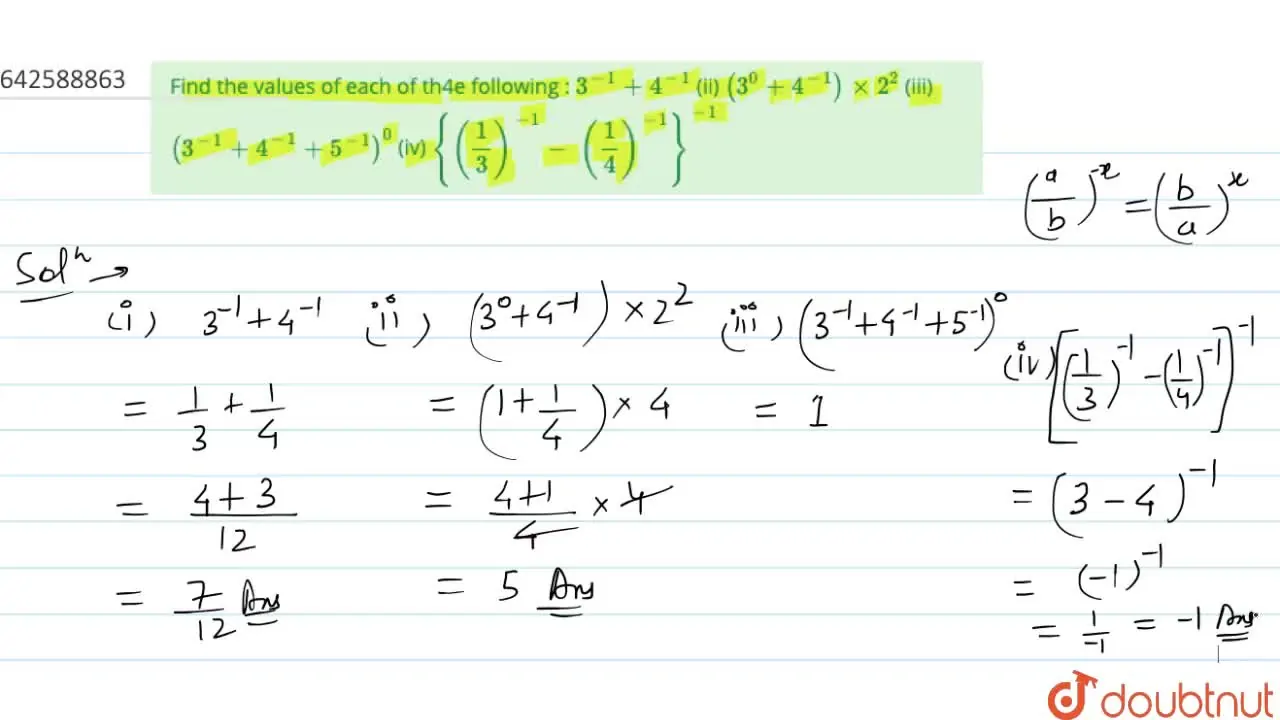 642588863
Find the values of each of th4e following : 3⁻¹ + 4⁻¹ (ii) (3⁰ + 4⁻¹) × 2² (iii)
(3⁻¹ + 4⁻¹ + 5⁻¹)⁰ (iv) {(1/3)⁻¹ − (1/4)⁻¹}⁻¹
(a/b)⁻ˣ = (b/a)ˣ
Solⁿ →
(i) 3⁻¹ + 4⁻¹
= 1/3 + 1/4
= (4 + 3)/12
= 7/12 Ans
(ii) (3⁰ + 4⁻¹) × 2²
= (1 + 1/4) × 4
= (4+1)/4 × 4
= 5 Ans
(iii) (3⁻¹ + 4⁻¹ + 5⁻¹)⁰
= 1
(iv) [(1/3)⁻¹ − (1/4)⁻¹]⁻¹
= (3 − 4)⁻¹
= (−1)⁻¹
= 1/−1 = −1 Ans
doubtnut